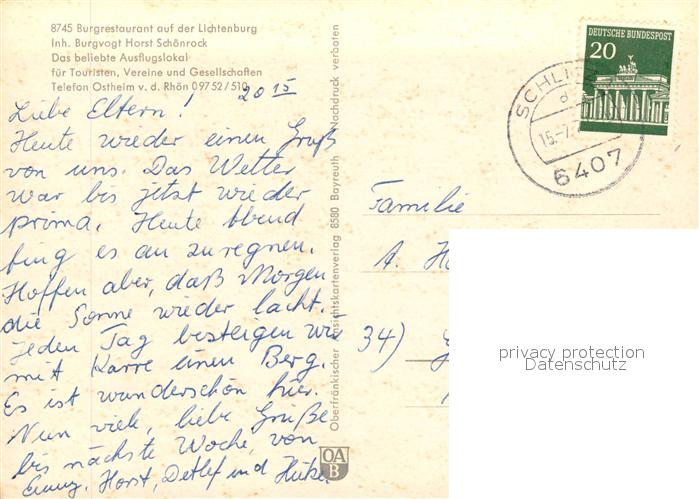 8745 Burgrestaurant auf der Lichtenburg
Inh. Burgvogt Horst Schönrock
Das beliebte Ausflugslokal
für Touristen, Vereine und Gesellschaften
Telefon Ostheim v. d. Rhön 0 97 52 / 510
20 15
Liebe Eltern!
Heute wieder einen Gruß
von uns. Das Wetter
war bis jetzt wieder
prima. Heute Abend
fing es an zu regnen.
Hoffen aber, daß Morgen
die Sonne wieder lacht.
Jeden Tag besteigen wir
mit Karre einen Berg.
Es ist wunderschön hier.
Nun viele, liebe Grüße
bis nächste Woche, von
Horst, Detlef und
Oberfränkischer Ansichtskartenverlag 8580 Bayreuth Nachdruck verboten
OA
B
DEUTSCHE BUNDESPOST
20
SCHLI
d
15.-7.
6407
Familie
A. H
34)
privacy protection
Datenschutz